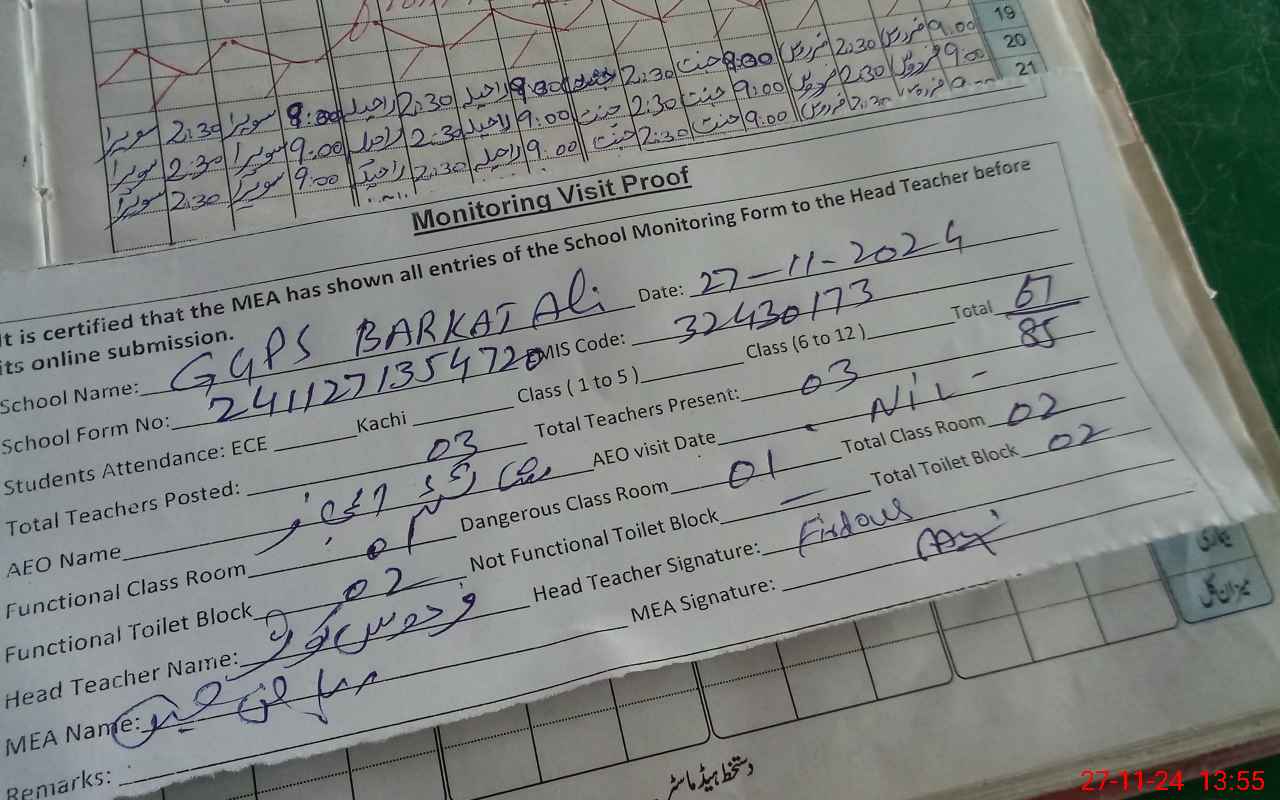 19
20
21
سویرا 2:30 سویرا 9:00 راحیلہ 2:30 راحیلہ 9:00 2:30 جنت 9:00 فردوس 2:30 فردوس 9:00
سویرا 2:30 سویرا 9:00 راحیلہ 2:30 راحیلہ 9:00 جنت 2:30 جنت 9:00 فردوس 2:30 فردوس 9:00
سویرا 2:30 سویرا 9:00 راحیلہ 2:30 راحیلہ 9:00 جنت 2:30 جنت 9:00 فردوس 2:30 فردوس
Monitoring Visit Proof
It is certified that the MEA has shown all entries of the School Monitoring Form to the Head Teacher before
its online submission.
School Name: GGPS BARKAT Ali Date: 27-11-2024
School Form No: 2411271354720 EMIS Code: 32430173
Students Attendance: ECE Kachi Class ( 1 to 5 ) Class (6 to 12 ) Total 67
85
Total Teachers Posted: 03 Total Teachers Present: 03
AEO Name AEO visit Date Nil -
Functional Class Room 01 Dangerous Class Room 01 Total Class Room 02
Functional Toilet Block 02 Not Functional Toilet Block — Total Toilet Block 02
Head Teacher Name: فردوس کوثر Head Teacher Signature: Firdous
MEA Name: MEA Signature:
Remarks:
میزان کل
دستخط ہیڈ ماسٹر
27-11-24 13:55